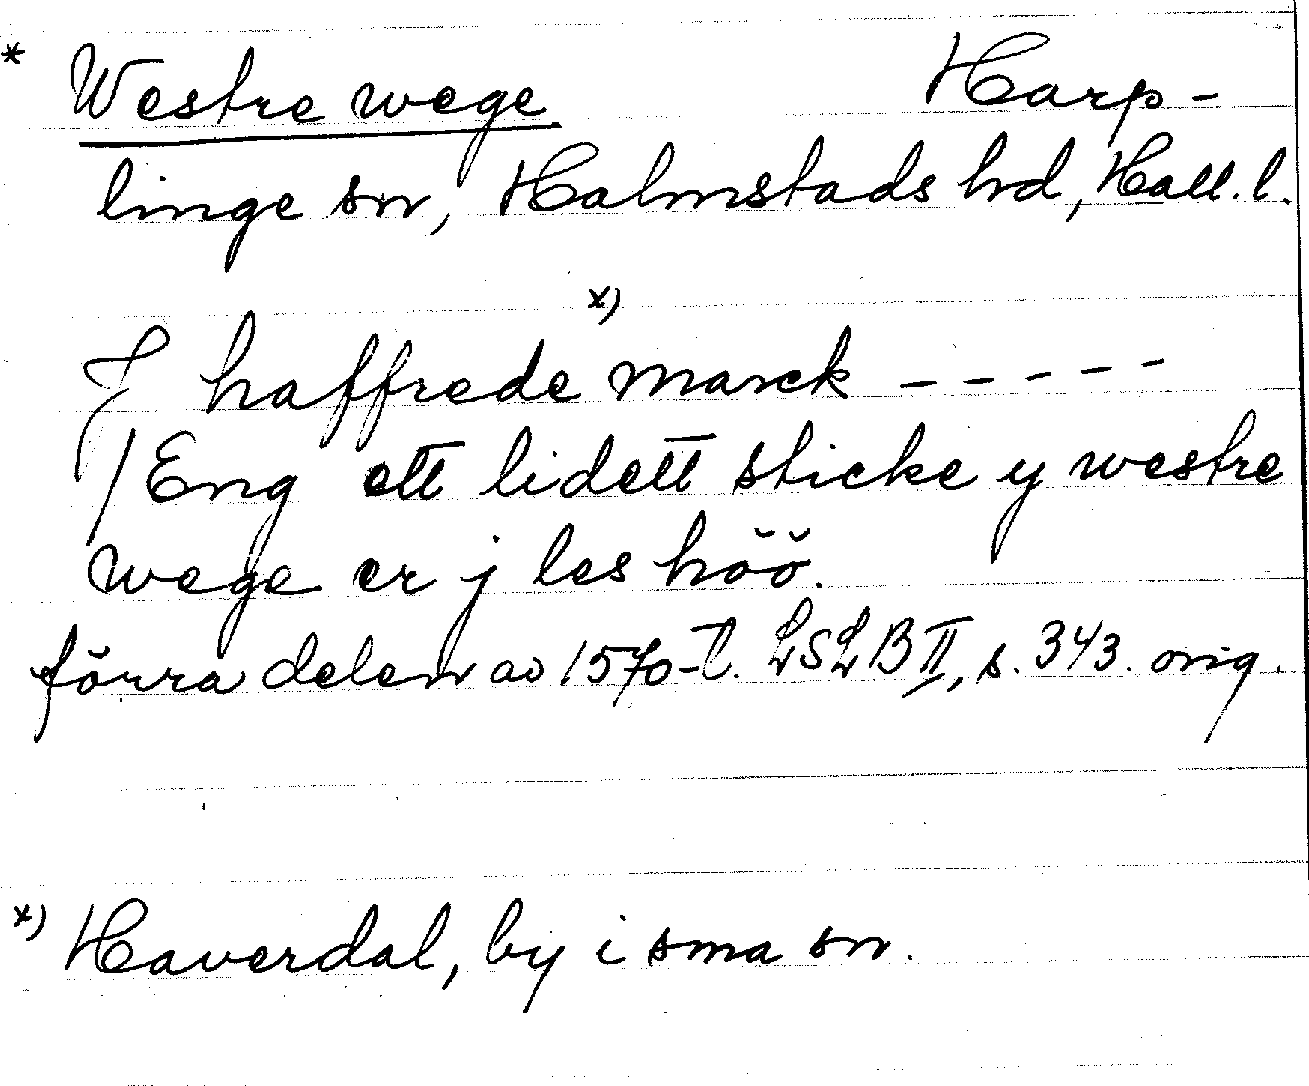 * Westre wege Harp-
linge sn, Halmstads hd, Hall. l.
x)
J haffrede marck - - - - -
/ Eng ett lidett sticke y westre
wege er j les höö.
förra delen av 1570-t. LSLB II, s. 343. orig.
x) Haverdal, by i sma sn.